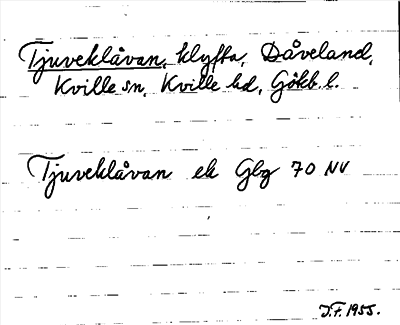 Tjuveklåvan, klyfta, Dåveland,
Kville sn, Kville hd, Gökb. l.
Tjuveklåvan ek Gbg 70 NV
J.F. 1955.